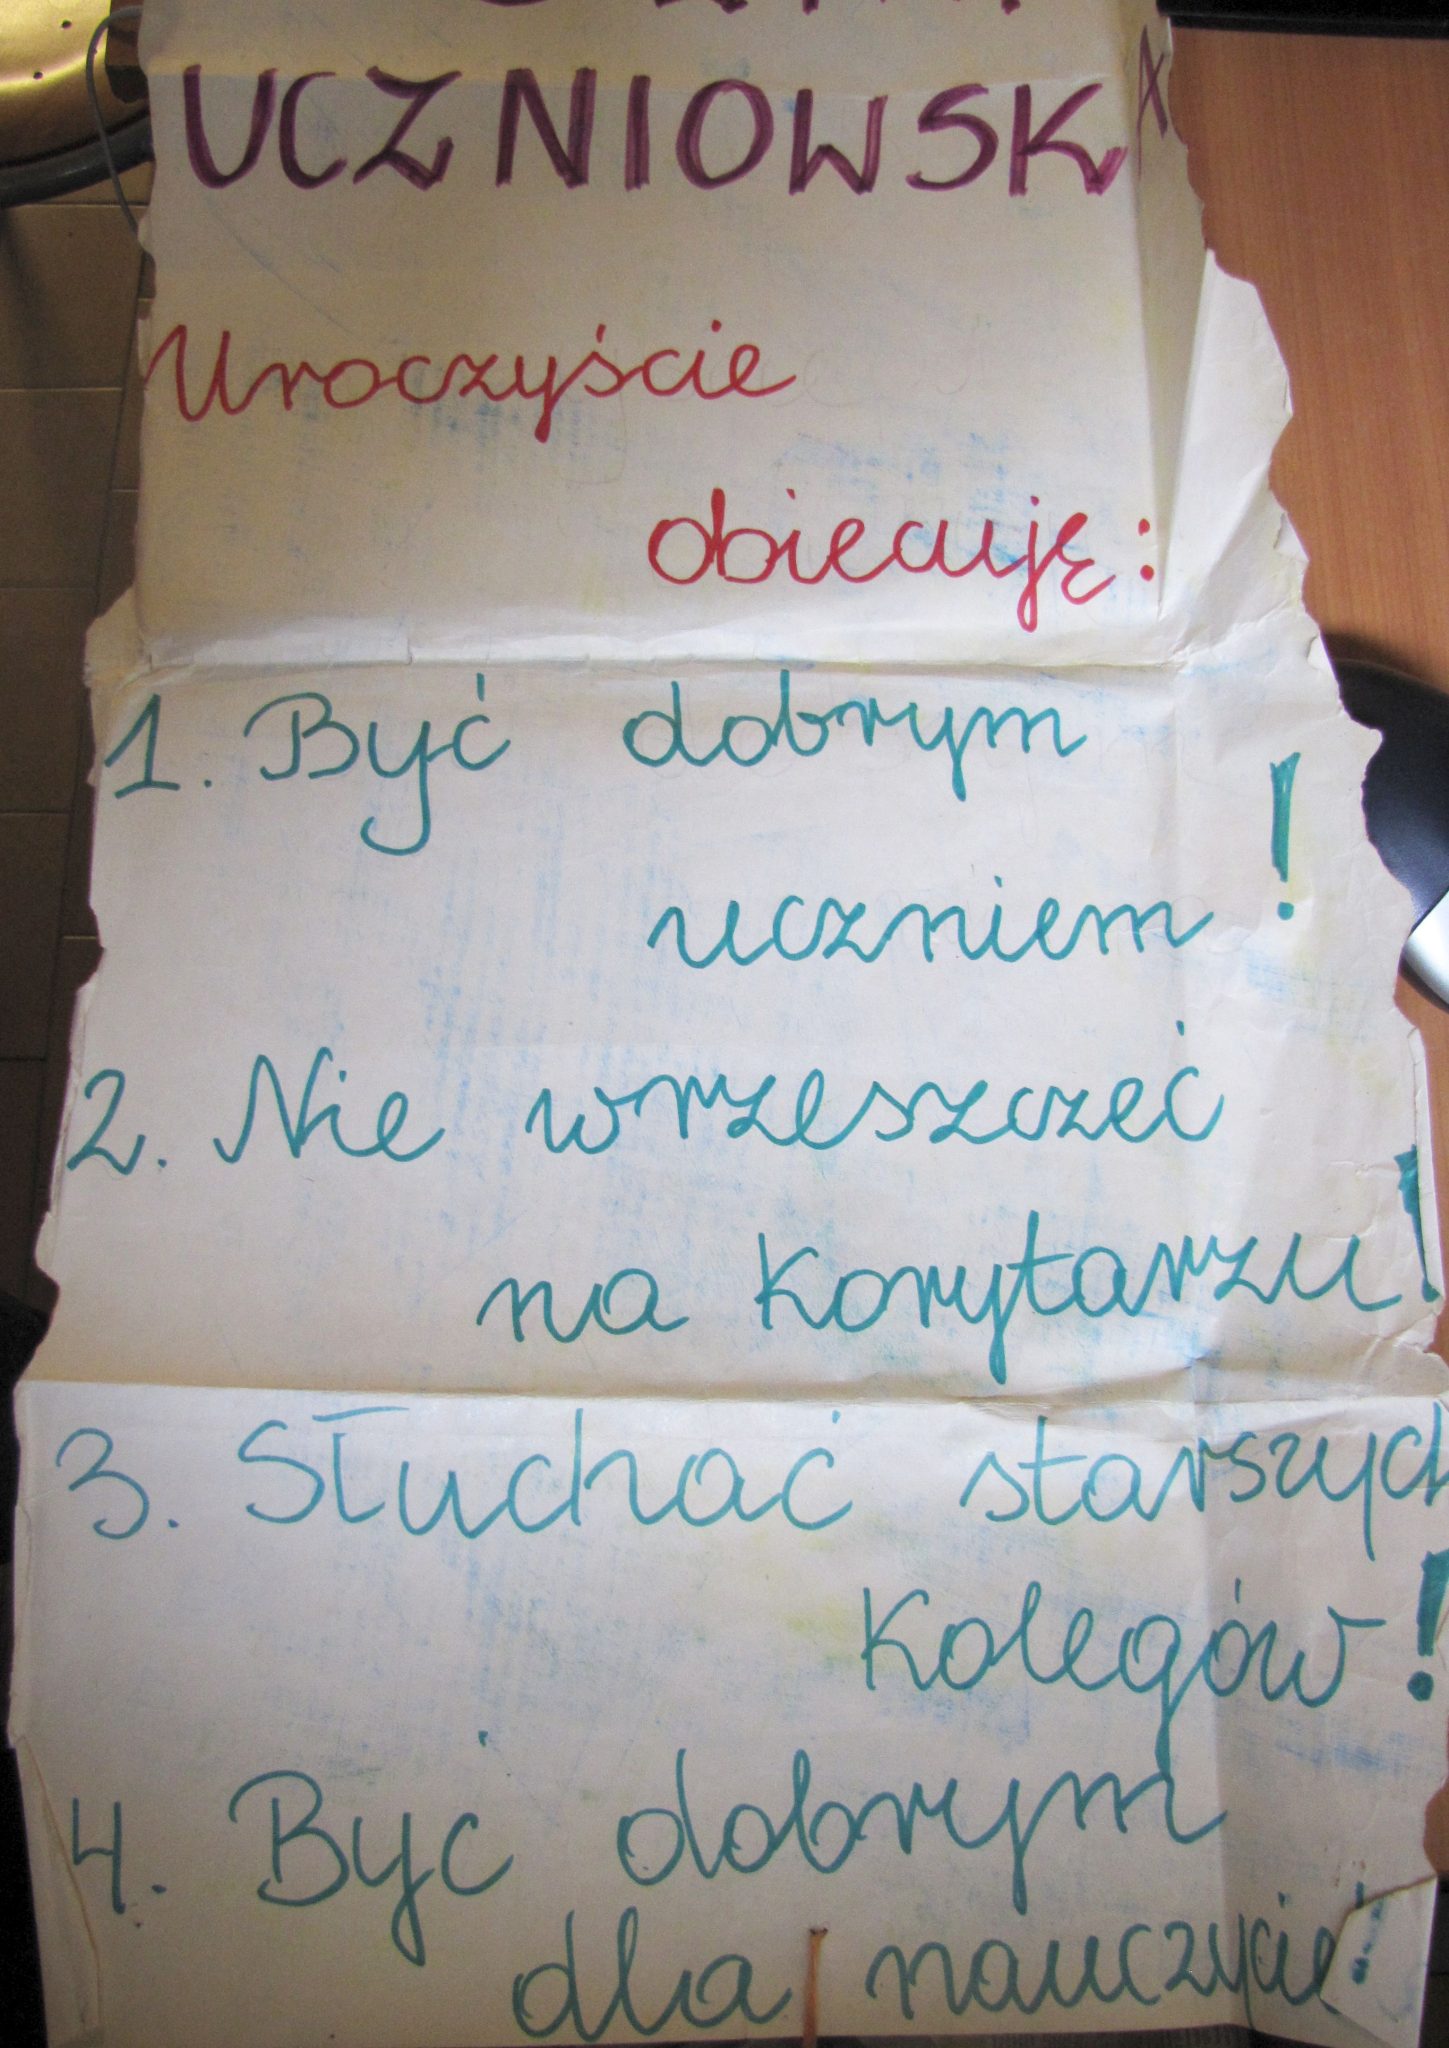 UCZNIOWSKA
Uroczyście
obiecuję:
1. Być dobrym
uczniem!
2. Nie wrzeszczeć
na korytarzu!
3. Słuchać starszych
kolegów!
4. Być dobrym
dla nauczycie!